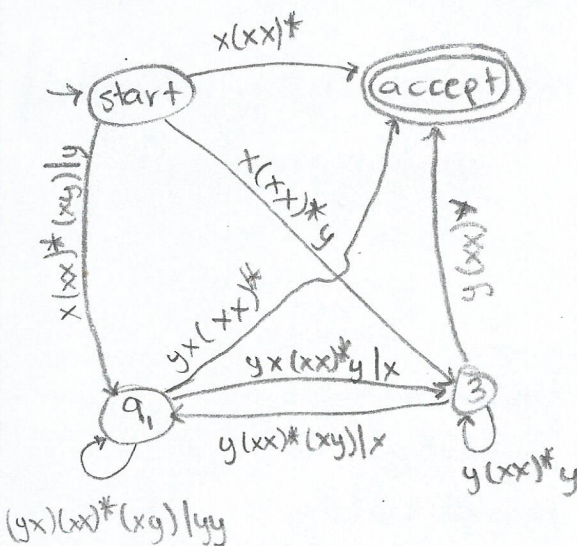 x(xx)*
start
accept
x(xx)*(xy)|y
x(xx)*y
y(xx)*
yx(xx)*
yx(xx)*y|x
q₁
3
y(xx)*(xy)|x
y(xx)*y
(yx)(xx)*(xy)|yy